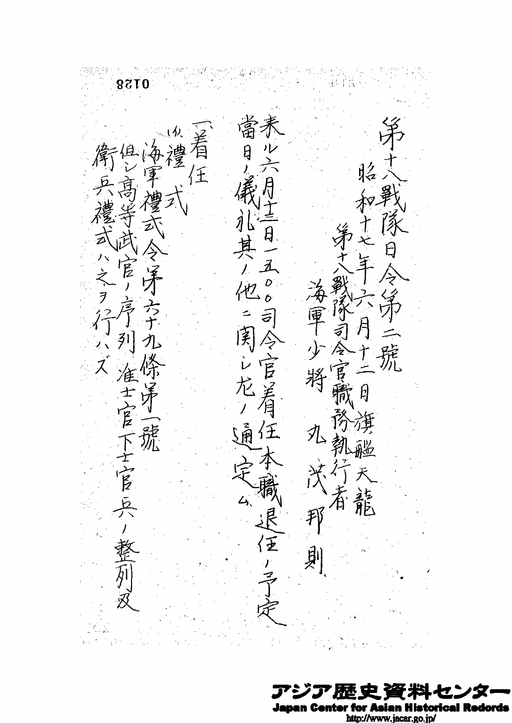 0128
第十八戰隊日令第二號
昭和十七年六月十二日旗艦天龍
第十八戰隊司令官職務執行者
海軍少將 丸茂邦則
来ル六月十三日一五〇〇司令官着任本職退任ノ予定
當日ノ儀礼其ノ他ニ関シ左ノ通定ム
一、着任
(イ)禮式
海軍禮式令第六十九條第一號
但シ高等武官ノ序列准士官下士官兵ノ整列及
衛兵禮式ハ之ヲ行ハズ
アジア歴史資料センター
Japan Center for Asian Historical Records
http://www.jacar.go.jp/